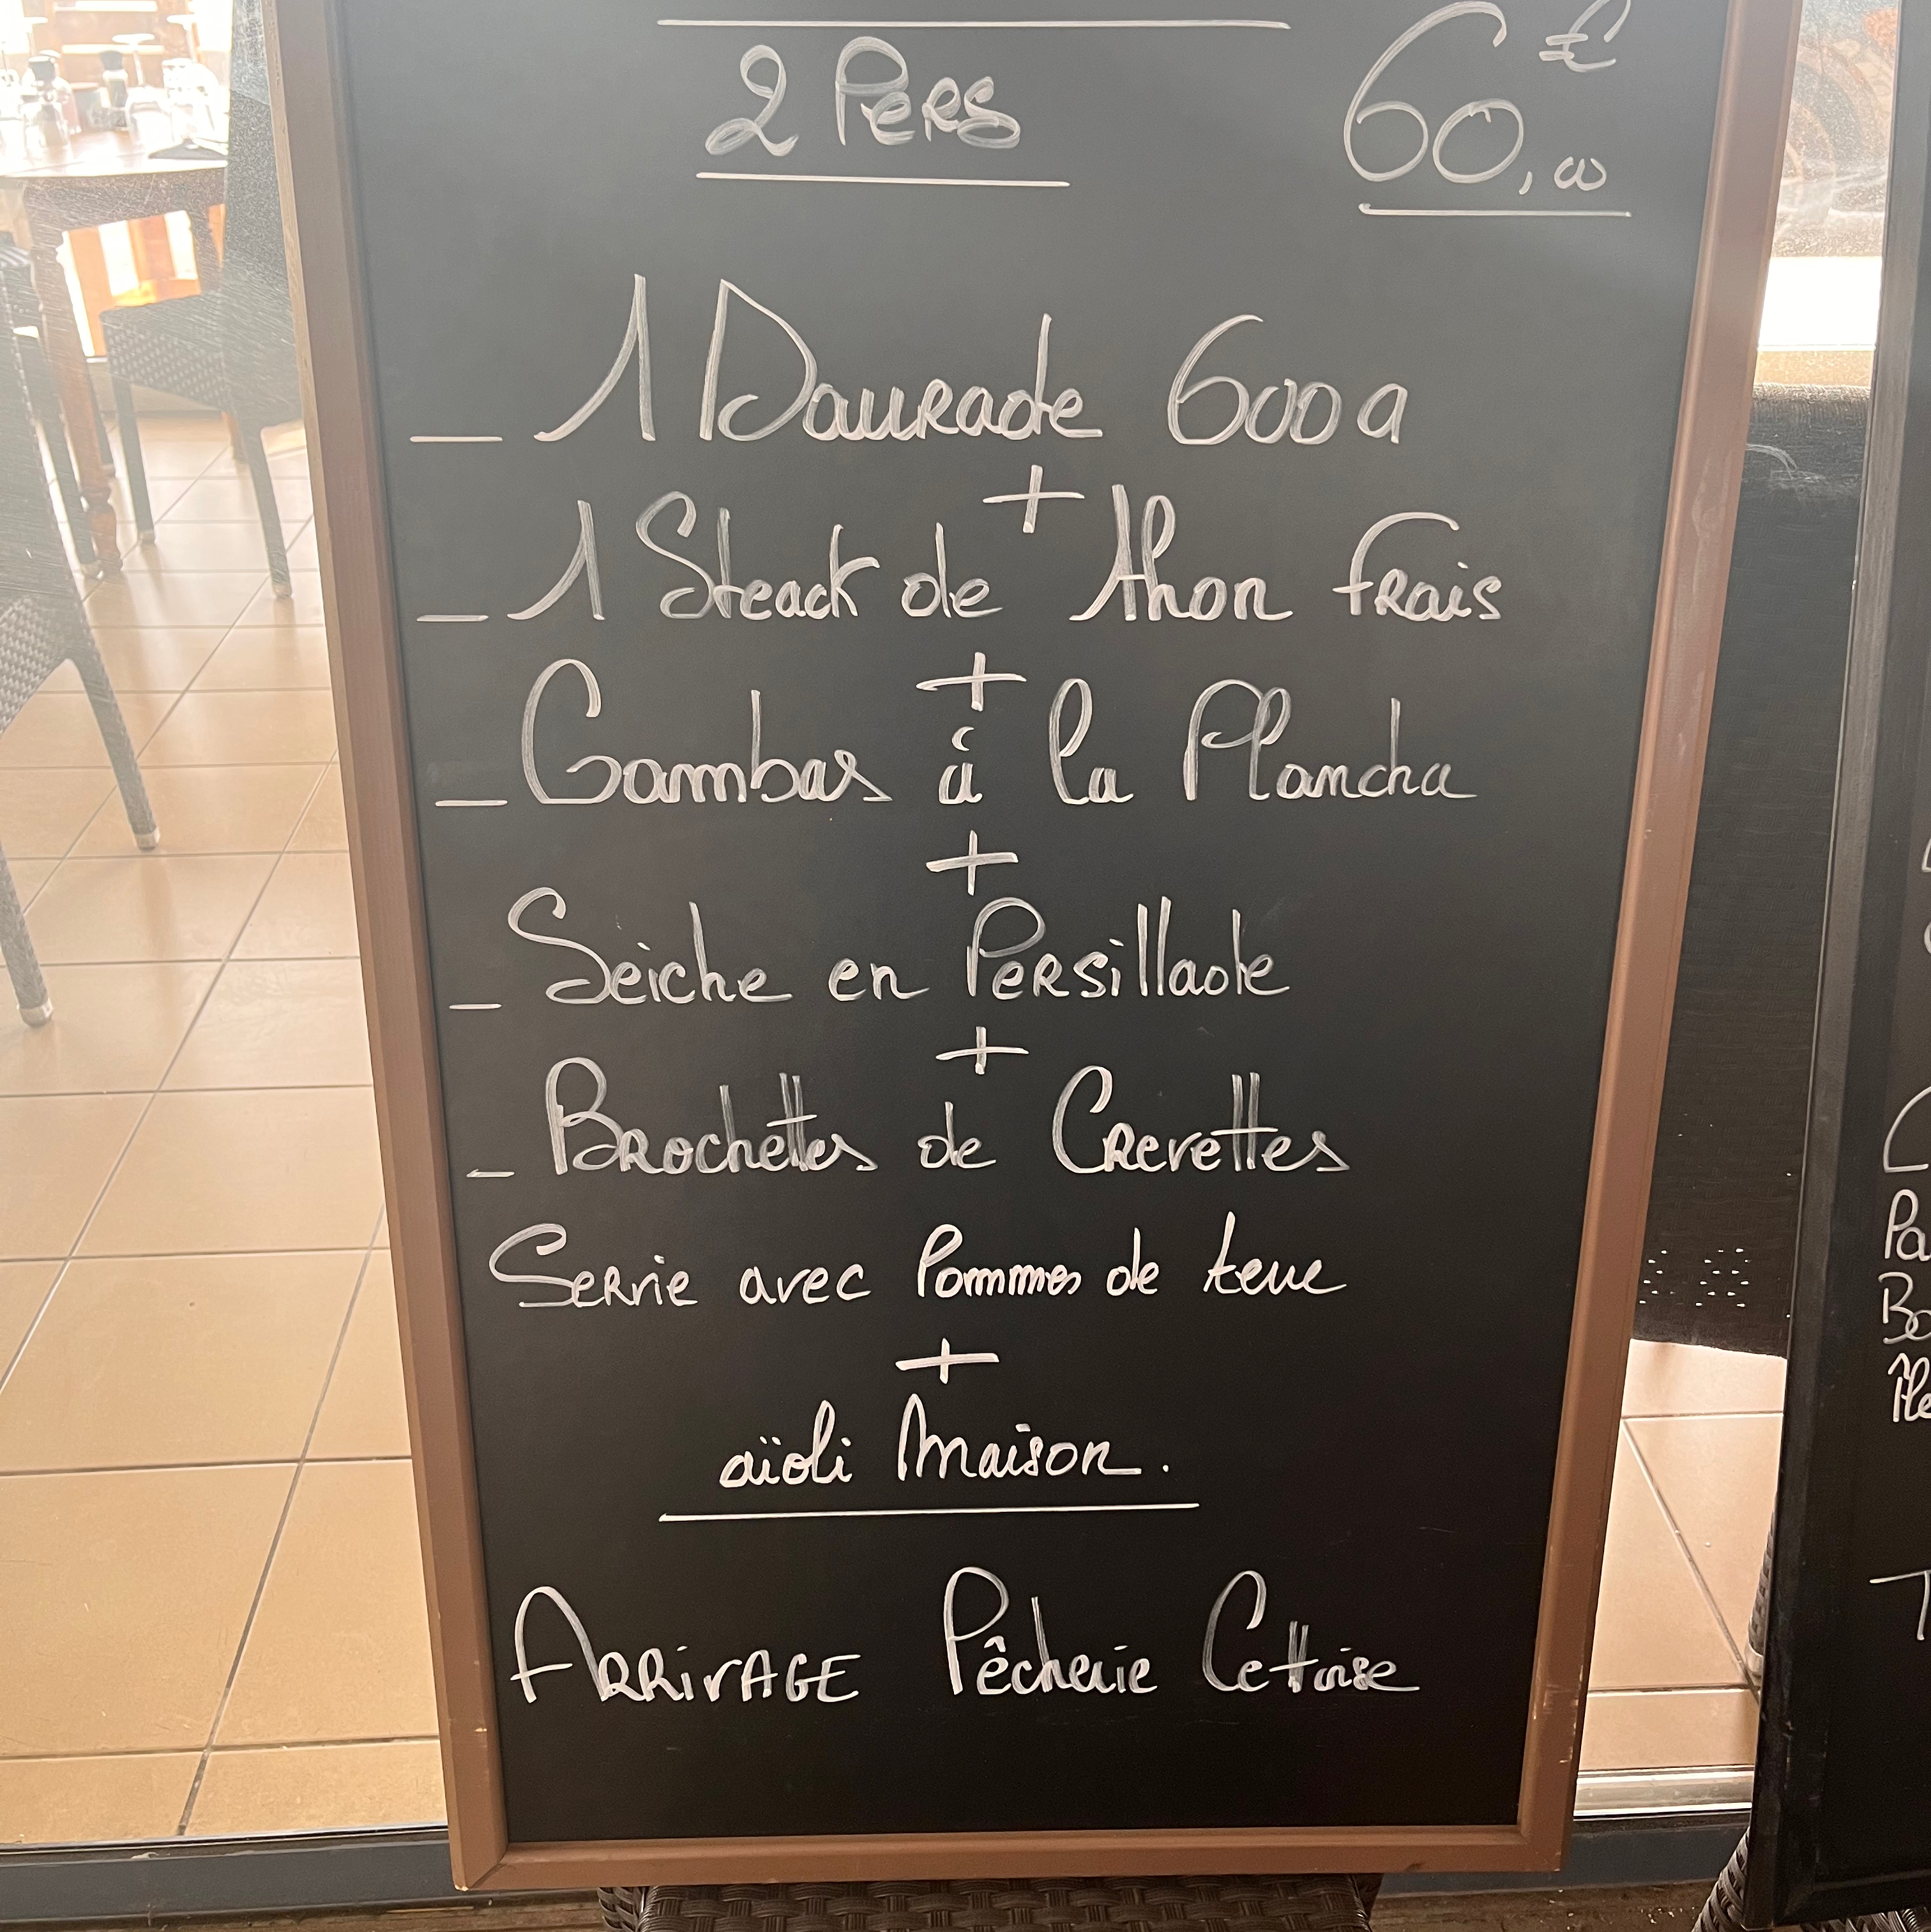 2 Pers 60,00 €
_ 1 Daurade 600g
+
_ 1 Steack de thon frais
+
_ Gambas à la Plancha
+
_ Seiche en Persillade
+
_ Brochettes de Crevettes
Servie avec Pommes de terre
+
aïoli Maison.
ARRIVAGE Pêcherie Cettoise
Pa
Bo